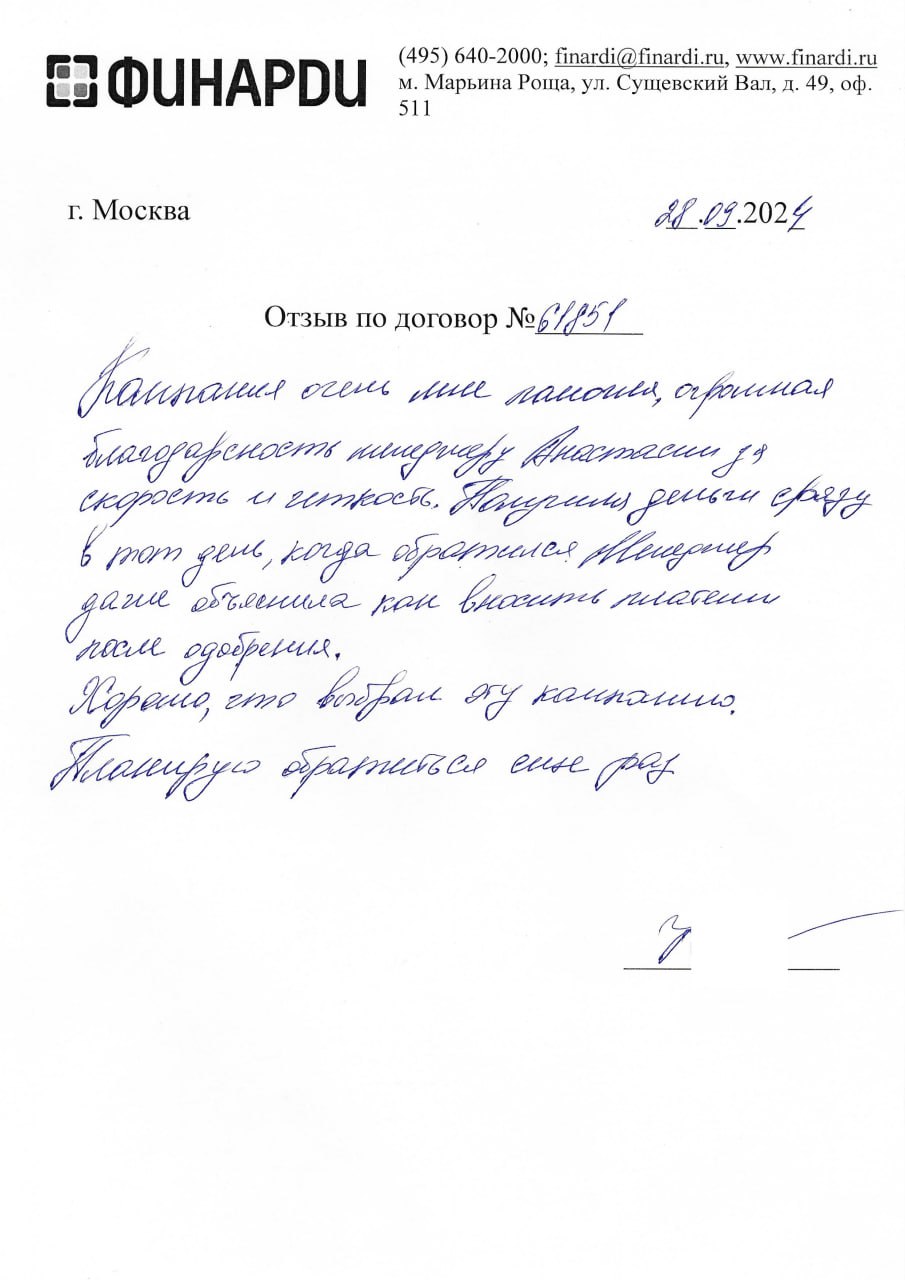 ФИНАРДИ
(495) 640-2000; finardi@finardi.ru, www.finardi.ru
м. Марьина Роща, ул. Сущевский Вал, д. 49, оф.
511
г. Москва
28.09.2024
Отзыв по договор №61851
Компания очень мне помогла, огромная
благодарность менеджеру Анастасии за
скорость и четкость. Получил деньги сразу
в тот день, когда обратился. Менеджер
даже объяснила как вносить платежи
после одобрения.
Хорошо, что выбрал эту компанию.
Планирую обратиться еще раз